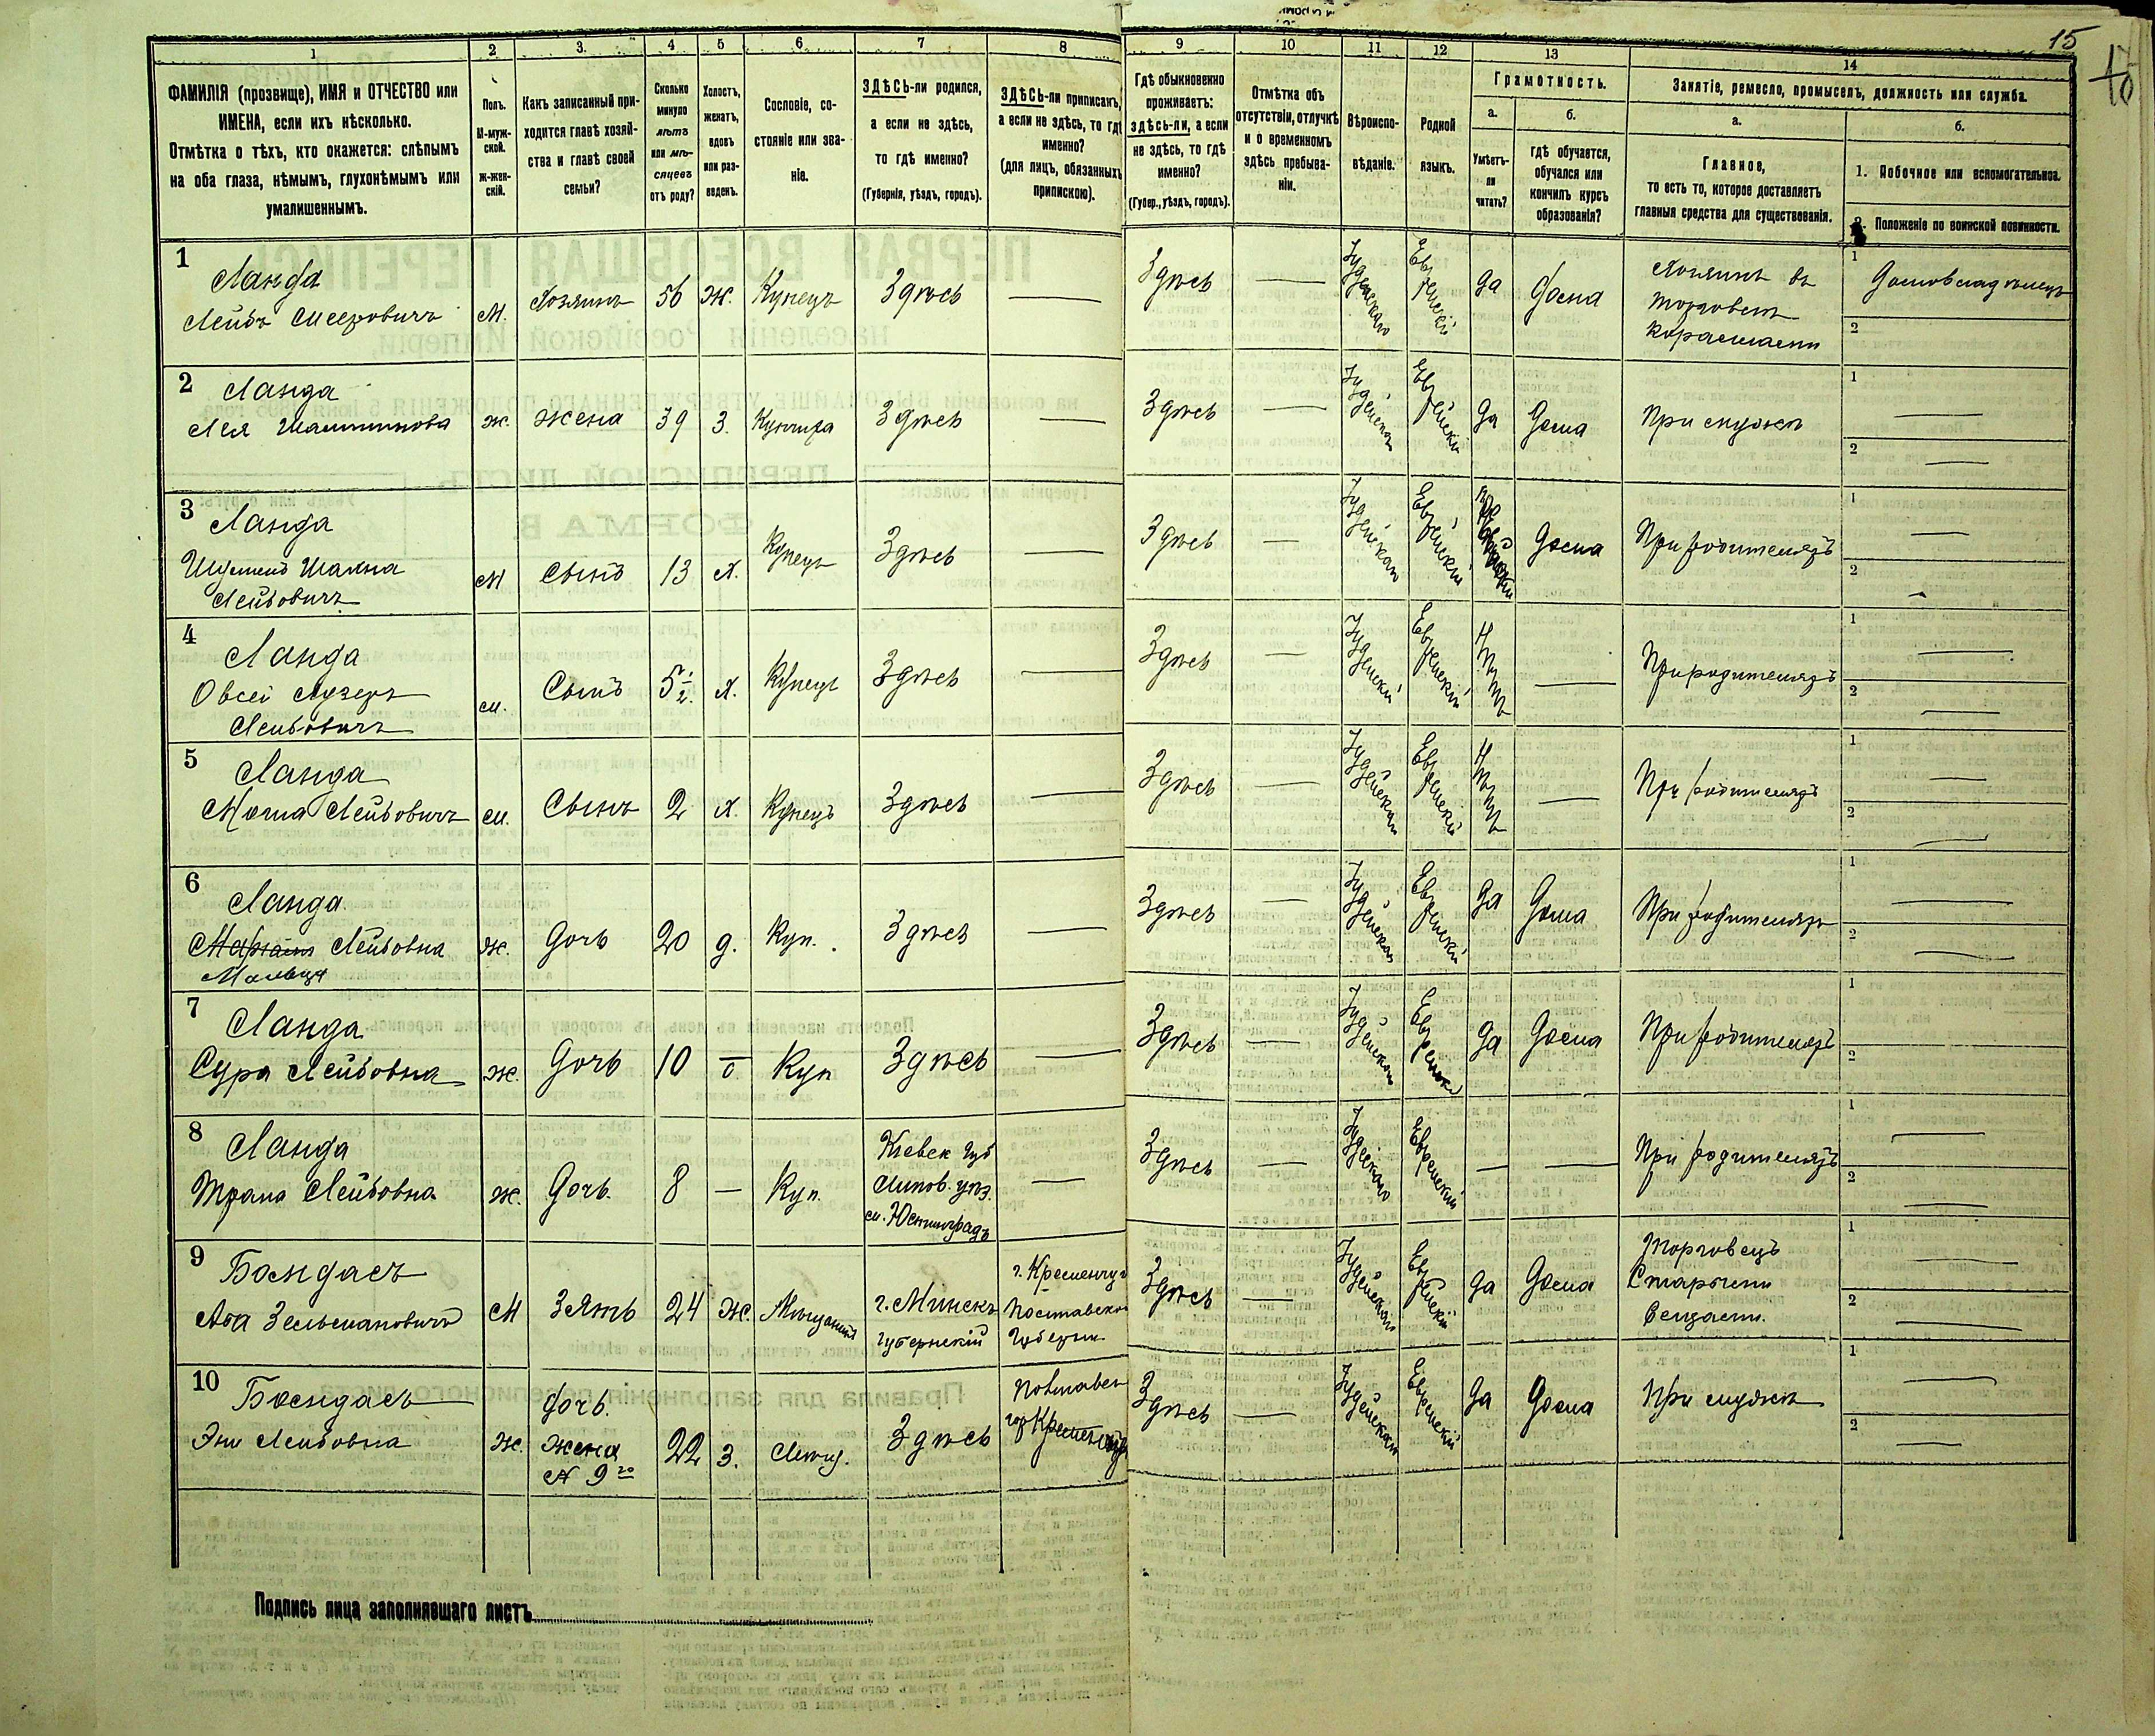 15
1
ФАМИЛІЯ (прозвище), ИМЯ и ОТЧЕСТВО или
ИМЕНА, если ихъ нѣсколько.
Отмѣтка о тѣхъ, кто окажется: слѣпымъ
на оба глаза, нѣмымъ, глухонѣмымъ или
умалишеннымъ.
2
Полъ.
М-муж-
ской.
ж-жен-
скій.
3.
Какъ записанный при-
ходится главѣ хозяй-
ства и главѣ своей
семьи?
4
Сколько
минуло
лѣтъ
или мѣ-
сяцевъ
отъ роду?
5
Холостъ,
женатъ,
вдовъ
или раз-
веденъ.
6
Сословіе, со-
стояніе или зва-
ніе.
7
ЗДѢСЬ-ли родился,
а если не здѣсь,
то гдѣ именно?
(Губернія, уѣздъ, городъ).
8
ЗДѢСЬ-ли приписанъ,
а если не здѣсь, то гдѣ
именно?
(для лицъ, обязанныхъ
припискою).
9
Гдѣ обыкновенно
проживаетъ:
здѣсь-ли, а если
не здѣсь, то гдѣ
именно?
(Губер., уѣздъ, городъ).
10
Отмѣтка объ
отсутствіи, отлучкѣ
и о временномъ
здѣсь пребыва-
ніи.
11
Вѣроиспо-
вѣданіе.
12
Родной
языкъ.
13
Грамотность.
а.
Умѣетъ-
ли
читать?
б.
гдѣ обучается,
обучался или
кончилъ курсъ
образованія?
14
Занятіе, ремесло, промыселъ, должность или служба.
а.
Главное,
то есть то, которое доставляетъ
главныя средства для существованія.
б.
1. Побочное или вспомогательное.
2. Положеніе по воинской повинности.
1
Ланда
Лейбъ Мееровичъ
М.
Хозяинъ
56
Ж.
Купецъ
Здѣсь
Здѣсь
Іудейскаго
Еврейскій
да
дома
Хозяинъ въ
торговлѣ
1
Домовладѣлецъ
2
2
Ланда
Лея
ж.
жена
39
З.
Купчиха
Здѣсь
Здѣсь
Іудейскаго
Еврейскій
Да
Дома
При мужѣ
1
2
3
Ланда
Лейбовичъ
М
Сынъ
13
Х.
Купецъ
Здѣсь
Здѣсь
Іудейскаго
Еврейскій
Дома
При родителяхъ
1
2
4
Ланда
Овсей Лузеръ
Лейбовичъ
м.
Сынъ
5 1/2.
Х.
Купецъ
Здѣсь
Здѣсь
Іудейскій
Еврейскій
Нѣтъ
При родителяхъ
1
2
5
Ланда
Лейбовичъ
м.
Сынъ
2
Х.
Купецъ
Здѣсь
Здѣсь
Іудейскаго
Еврейскій
Нѣтъ
При родителяхъ
1
2
6
Ланда
Лейбовна
ж.
Дочь
20
д.
Куп.
Здѣсь
Здѣсь
Іудейскаго
Еврейскій
да
Дома
При родителяхъ
1
2
7
Ланда
Сура Лейбовна
ж.
Дочь
10
Куп
Здѣсь
Здѣсь
Іудейскаго
Еврейскій
да
Дома
При родителяхъ
1
2
8
Ланда
Лейбовна
ж.
Дочь.
8
Куп.
Кіевск. губ
Липов. уѣз.
м. Юстинградъ
Здѣсь
Іудейскаго
Еврейскій
При родителяхъ
1
2
9
Бендасъ
Аба Зельмановичъ
М
Зять
24
Ж.
Мѣщанинъ
г. Минскъ
губернскій
г. Кременчуг
Полтавской
Губерніи
Здѣсь
Іудейскаго
Еврейскій
да
Дома
Торговецъ
Старыми
Вещами.
1
2
10
Бендасъ
Эни Лейбовна
ж.
дочь.
жена
№ 9го
22
З.
Мѣщ.
Здѣсь
Полтавск
гор Кременчуг
Здѣсь
Іудейскаго
Еврейскій
да
Дома
При мужѣ
1
2
Подпись лица заполнявшаго листъ